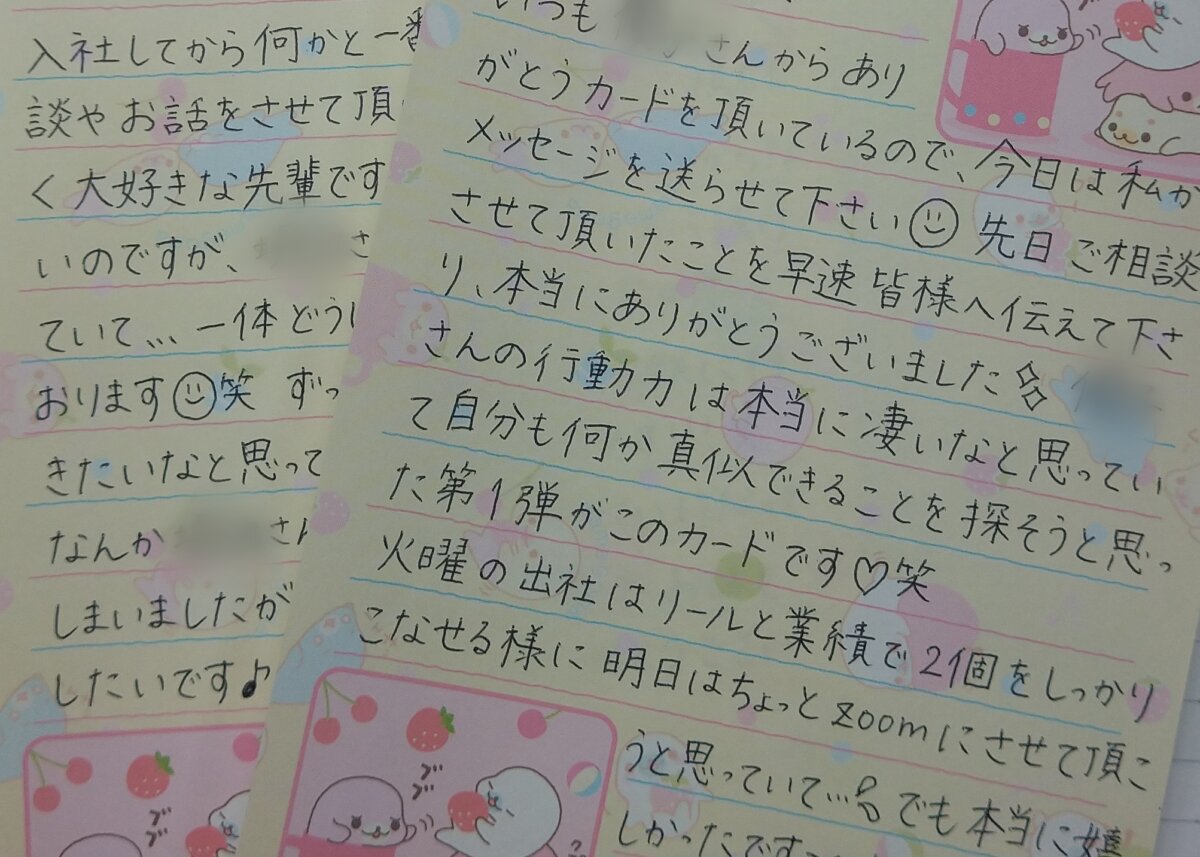 入社してから何かと一番
談やお話をさせて頂
く大好きな先輩です
いのですが、
ていて… 一体どう
おります☺笑 ずっ
きたいなと思って
なんか さん
しまいましたが
したいです♪
いつも さんからあり
がとうカードを頂いているので、今日は私か
メッセージを送らせて下さい☺ 先日ご相談
させて頂いたことを早速皆様へ伝えて下さ
り、本当にありがとうございました
さんの行動力は本当に凄いなと思ってい
て自分も何か真似できることを探そうと思っ
た第1弾がこのカードです♡笑
火曜の出社はリールと業績で2個をしっかり
こなせる様に明日はちょっとzoomにさせて頂こ
うと思っていて… でも本当に嬉
しかったです
ブブ
ブブ